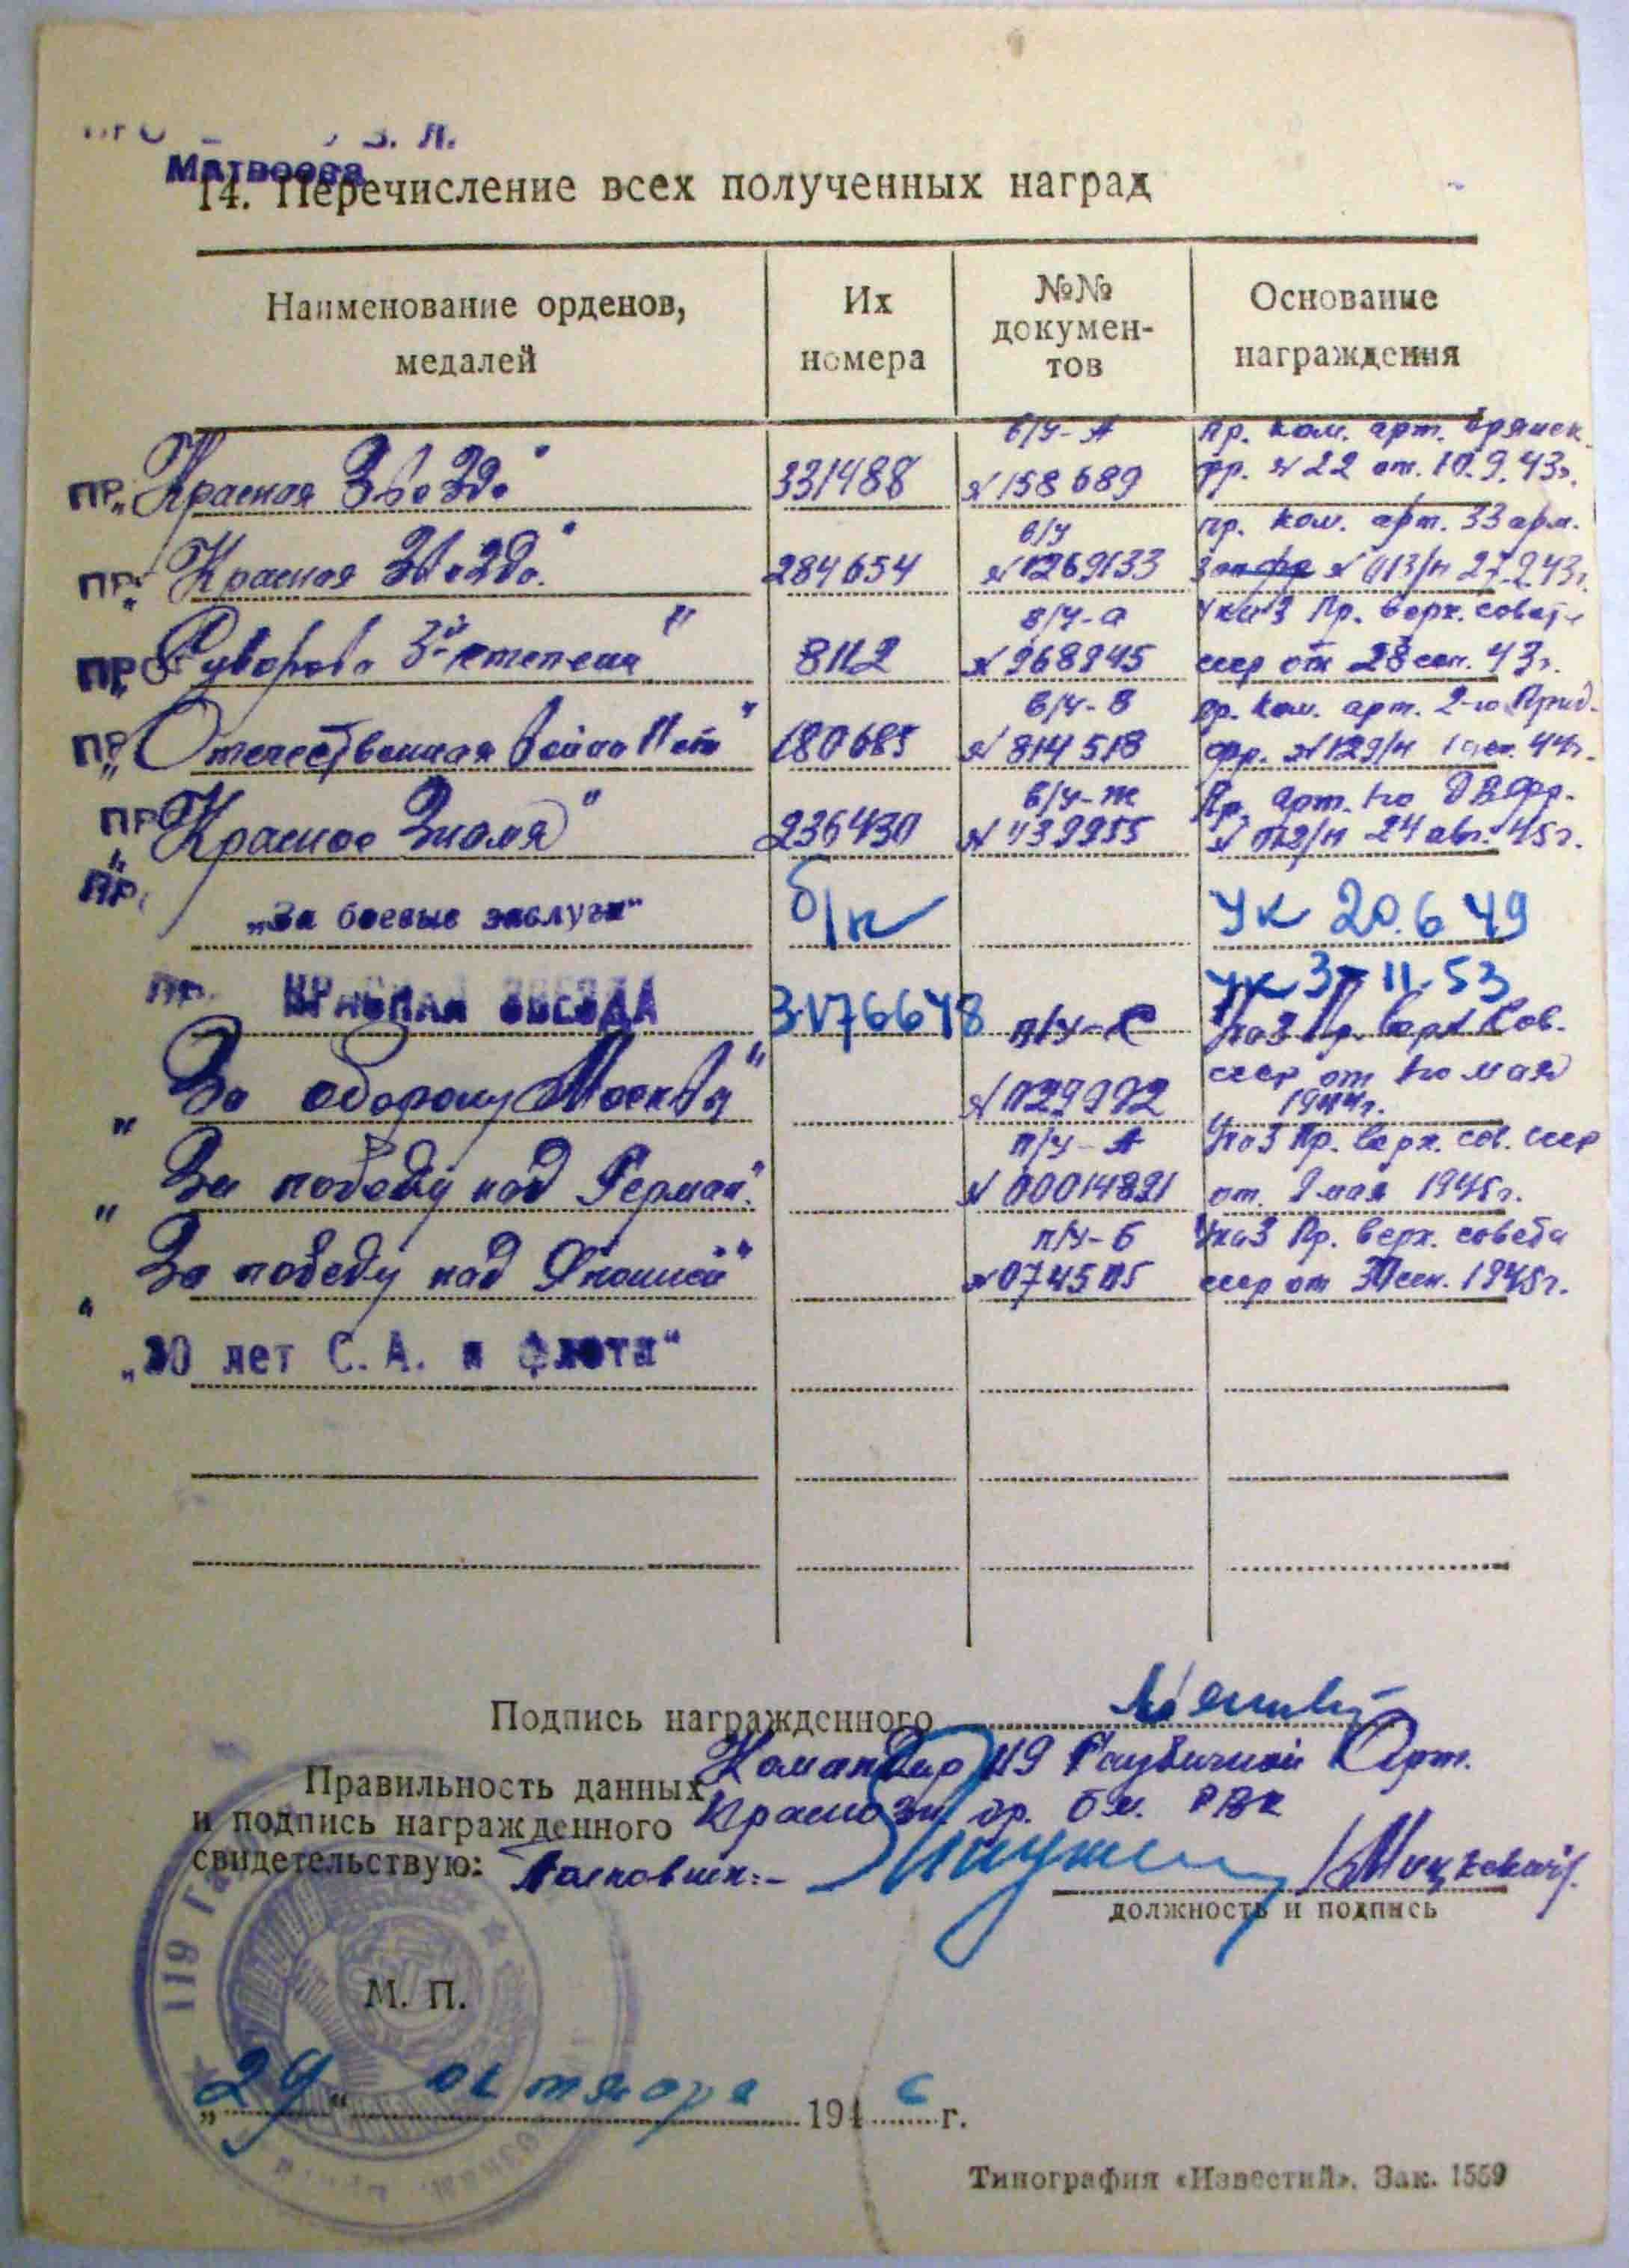 З. Л.
Матвеева
14. Перечисление всех полученных наград
Наименование орденов, медалей
Их номера
№№ докумен-тов
Основание награждения
в/у-А Пр. ком. арт. Брянск.
ПР. „Красная Звезда" 331488 № 158689 фр. № 22 от. 10.9.43г.
в/у Пр. ком. арт. 33 арм.
ПР. „Красная Звезда" 284654 № 1269133 № 013/н 27.2.43г.
в/у-а Указ Пр. верх. совета
ПР. „Суворова 3й степени" 8112 № 968945 ссср от 28 сен. 43г.
в/у-В Пр. ком. арт. 2-го Приб.
ПР. „Отечественная Война" 180685 № 814518 фр. № 129/н 44г.
в/у-ж Пр. арт. 1го ДВ фр.
ПР. „Красное Знамя" 236430 № 439955 № 012/н 24 авг. 45г.
ПР. „За боевые заслуги" б/н УК 20.6.49
Пр. КРАСНАЯ ЗВЕЗДА 3176648 УК 3-11.53
п/у-С Указ Пр. Верх Сов.
ссср от 1го мая
„За оборону Москвы" № 029992 1944г.
п/у-А Указ Пр. верх. сов. ссср
„За победу над Герман." № 00014891 от. 9 мая 1945г.
п/у-б Указ Пр. верх. совета
„За победу над Японией" № 074505 ссср от 30 сен. 1945г.
„30 лет С. А. и Флота"
Подпись награжденного
Командир 119 Гаубичной Арт.
Правильность данных
Краснозн. бр. б.м. РВК
и подпись награжденного
свидетельствую: Полковник:-
должность и подпись
119 Га
М. П.
„29" октября 1946 г.
Типография «Известий». Зак. 1559